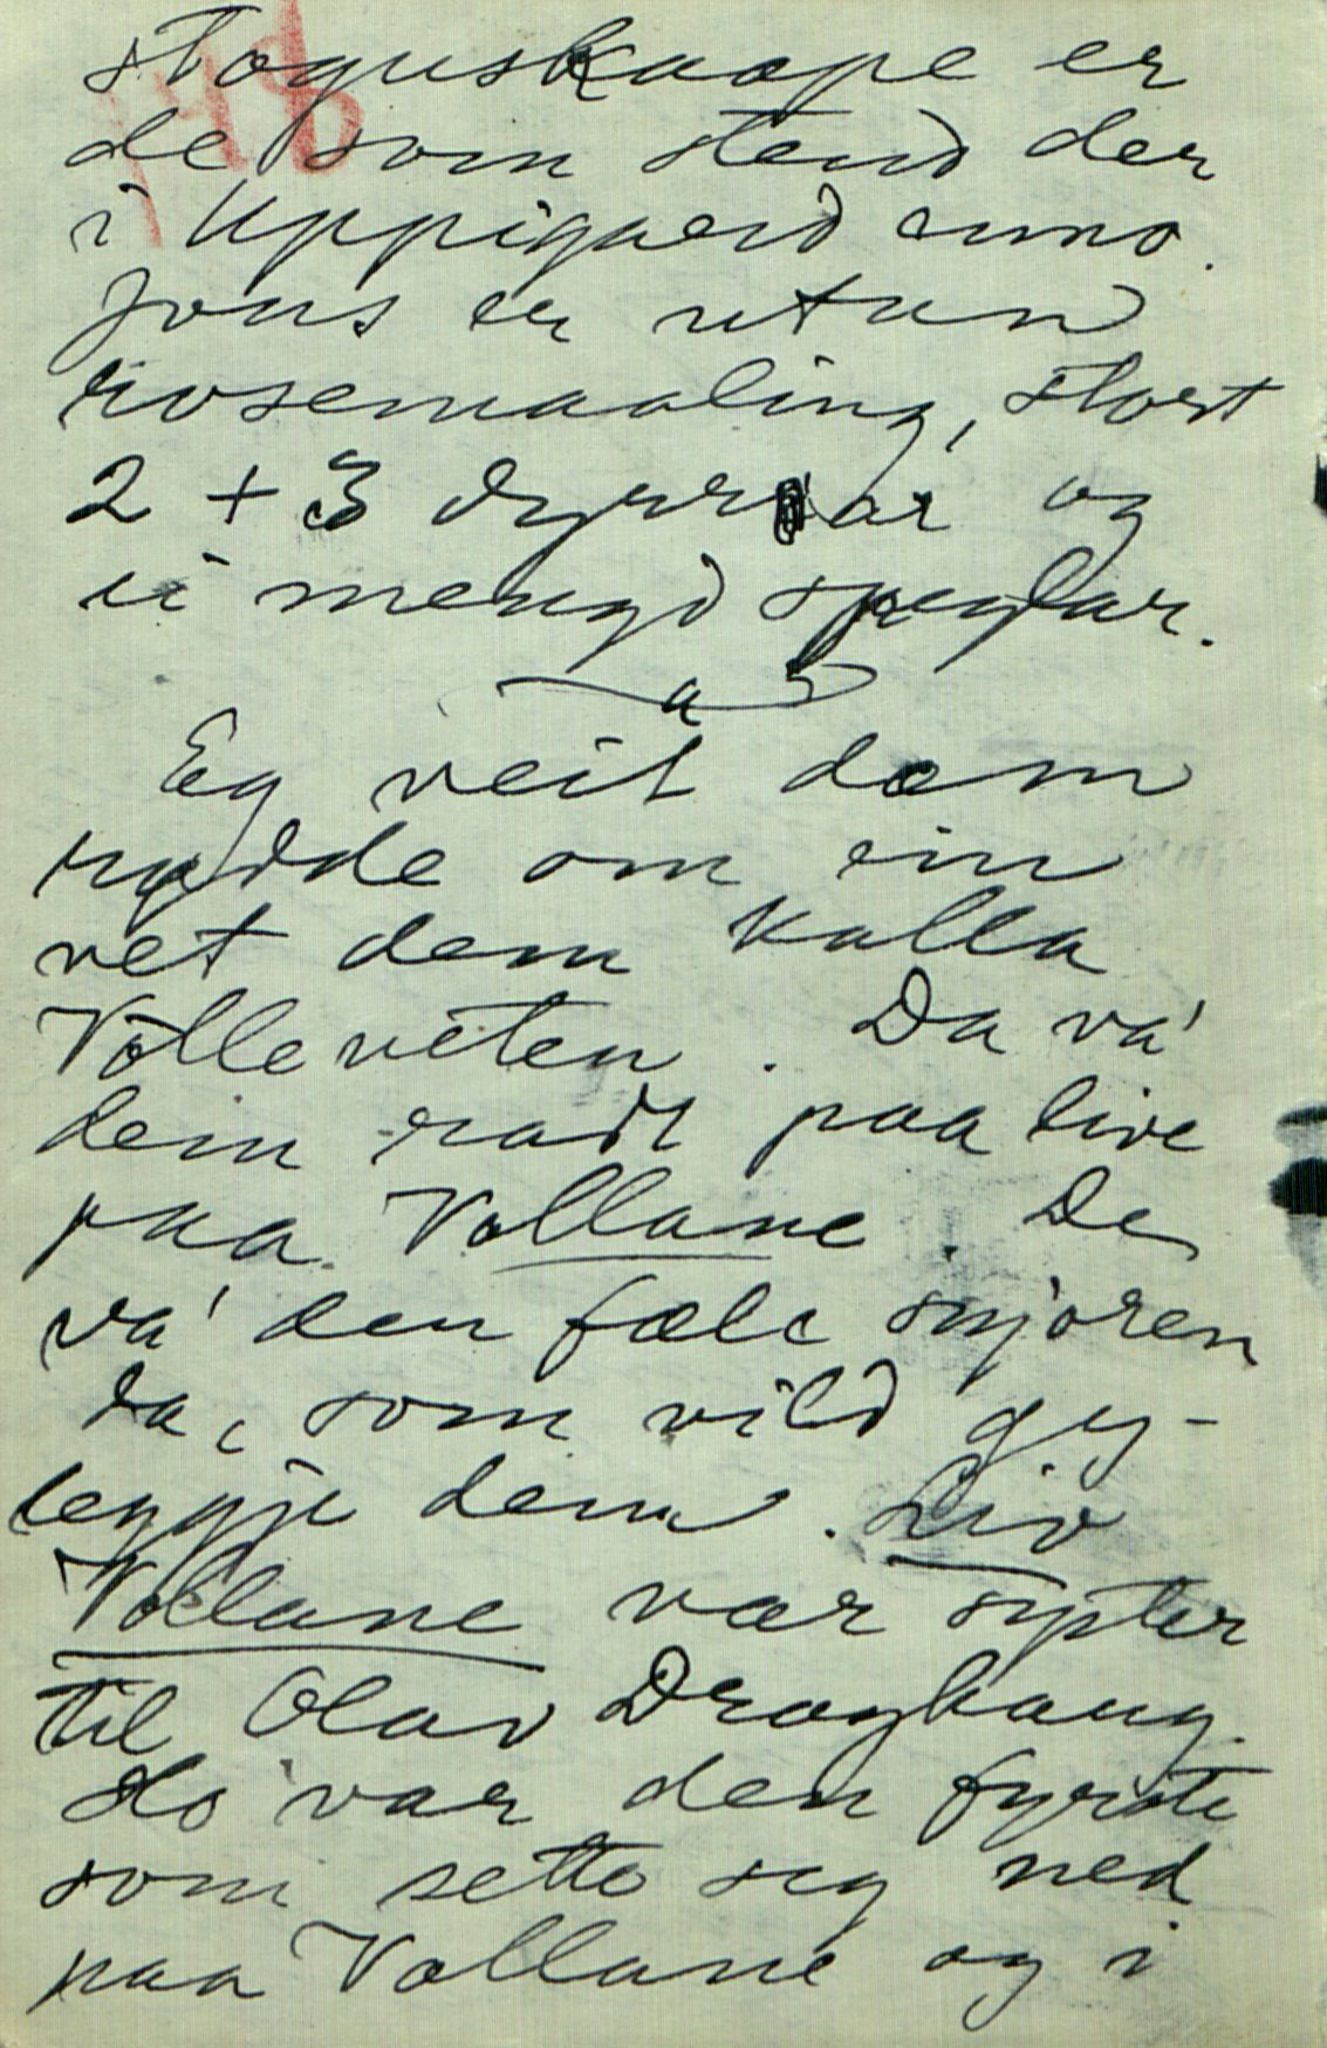 stoguskaape er
de som stend der
i Uppigard enno.
Jons er utan
rosemaaling, stort
2 + 3 dyrrar og
ei mengd speglar.
Eg veit dam
rødde om ein
vet dem kalla
Volleveten. Da va'
dem radt paa live
paa Vollane. De
va' den fæle snjoren
da, som vild øy-
leggje dem. Liv
Vollane var syster
til Olav Draghaug.
Ho var den fyrste
som sette seg ned
paa Vollane og i